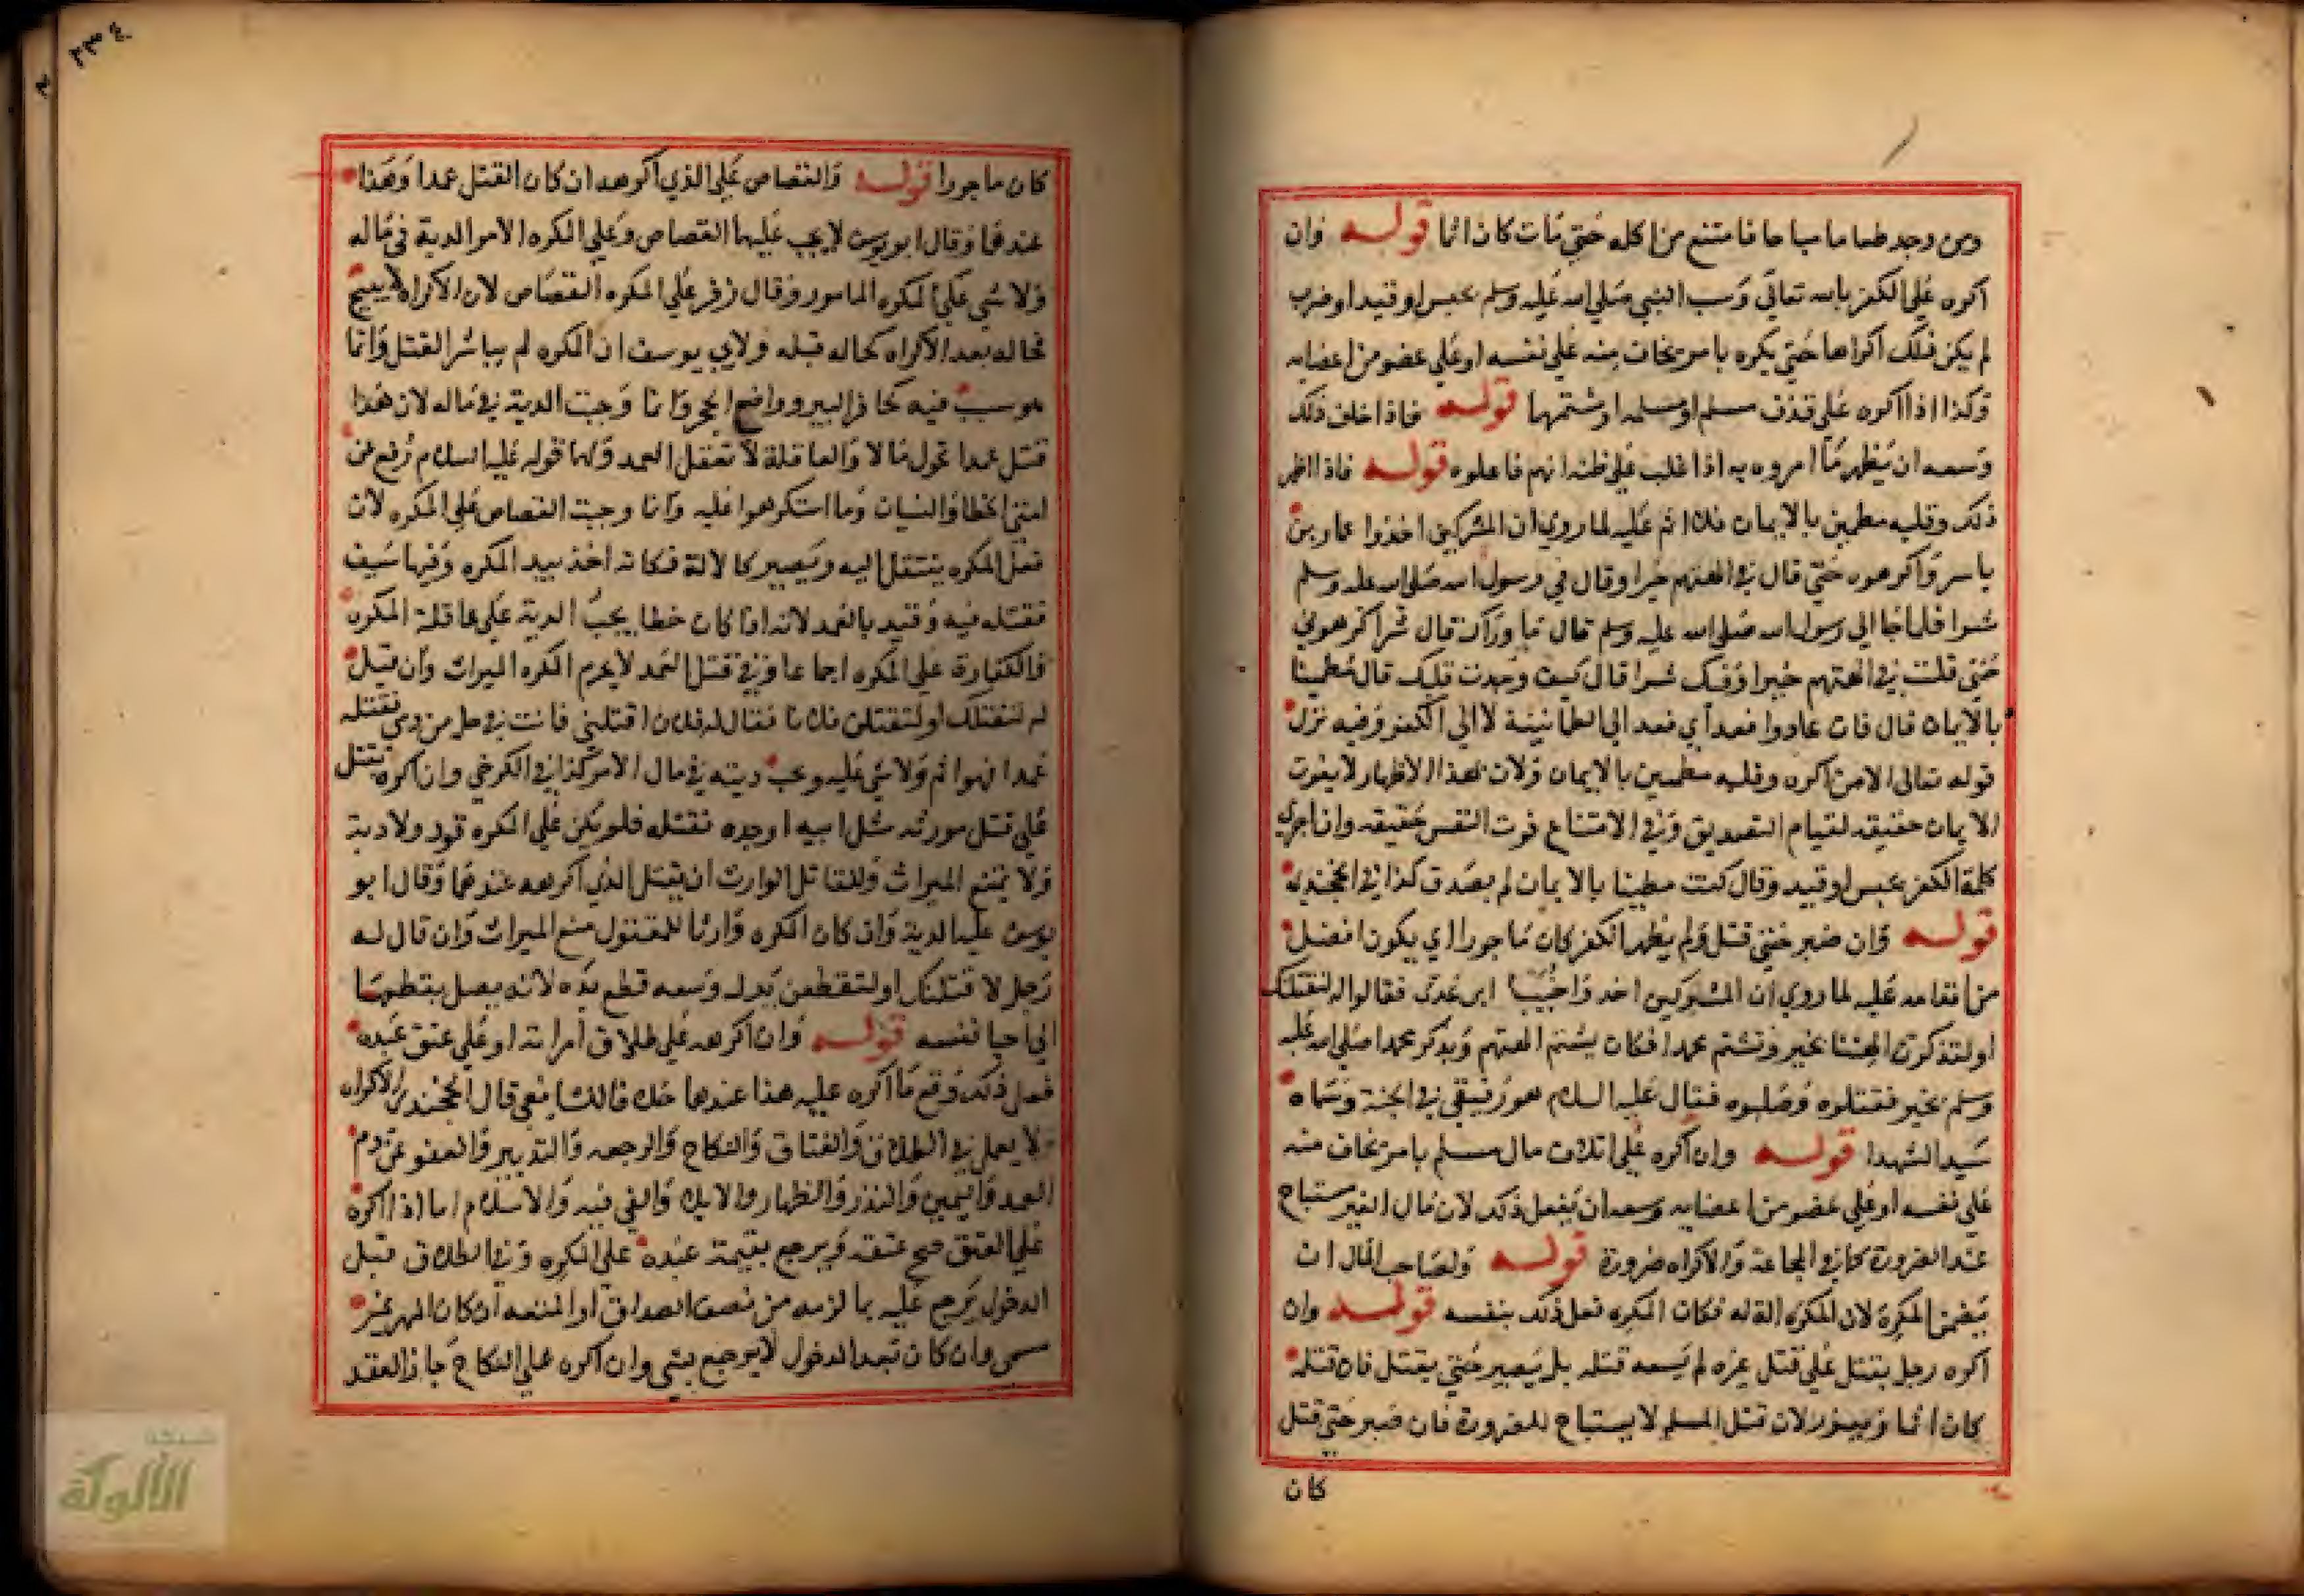 ومن وجد طعاما مباحا فامتنع من اكله حتي مات كان اثما قوله وان
اكره علي الكفر بالله تعالي وسب النبي صلي الله عليه وسلم بحبس او قيد او ضرب
لم يكن ذلك اكراها حتي يكره بامر يخاف منه علي نفسه او علي عضو من اعضايه
وكذا اذا اكره علي قذف مسلم او مسلمه او شتمهما قوله فاذا خاف ذلك
وسعه ان يظهر ما امروه به اذا غلب علي ظنه انهم فاعلوه قوله فاذا اظهر
ذلك وقلبه مطمين بالايمان فلا اثم عليه لما روي ان المشركين اخذوا عمار بن
ياسر واكرهوه حتي قال في الهتهم خيرا وقال في رسول الله صلي الله عليه وسلم
شرا فلما جا الي رسول الله صلي الله عليه وسلم قال ما وراك قال شر اكرهوني
حتي قلت في الهتهم خيرا وفيك شرا قال كيف وجدت قلبك قال مطمينا
بالايمان قال فان عادوا فعد اي فعد الي الطمانينة لا الي الكفر وفيه نزل
قوله تعالي الا من اكره وقلبه مطمين بالايمان ولان بهذا الاظهار لا يفوت
الايمان حقيقه لقيام التصديق وفي الامتناع فوت النفس حقيقه وان اجري
كلمة الكفر بحبس او قيد وقال كنت مطمينا بالايمان لم يصدق كذا في الخجندي
قوله وان صبر حتي قتل ولم يظهر الكفر كان ماجورا اي يكون افضل
من اقدامه عليه لما روي ان المشركين اخذوا خبيبا ابن عدي فقالوا له لنقتلك
او لتذكرن الهتنا بخير وتشتم محمدا فكان يشتم الهتهم ويذكر محمدا صلي الله عليه
وسلم بخير فقتلوه وصلبوه فقال عليه السلام هو رفيقي في الجنة وسماه
سيد الشهدا قوله وان اكره علي اتلاف مال مسلم بامر يخاف منه
علي نفسه او علي عضو من اعضايه وسعه ان يفعل ذلك لان مال الغير يستباح
عند الضرورة كما في المجاعة والاكراه ضرورة قوله ولصاحب المال ان
يضمن المكره لان المكره الة له فكان المكره فعل ذلك بنفسه قوله وان
اكره رجل بقتل علي قتل غيره لم يسعه قتله بل يصبر حتي يقتل فان قتله
كان اثما ويعزر لان قتل المسلم لا يستباح للضرورة فان صبر حتي قتل
كان
٢٣٤
كان ماجورا قوله والقصاص علي الذي اكرهه ان كان القتل عمدا وهذا
عندهما وقال ابو يوسف لا يجب عليهما القصاص وعلي المكره الامر الدية في ماله
ولا شي علي المكره المامور وقال زفر علي المكره القصاص لان الاكراه لا يبيح
فحاله بعد الاكراه كحاله قبله ولابي يوسف ان المكره لم يباشر القتل وانما
هو سبب فيه كحافر البير وواضع الحجر وانما وجبت الدية في ماله لان هذا
قتل عمدا تحول مالا والعاقلة لا تعقل العمد ولهما قوله عليه السلام رفع عن
امتي الخطا والنسيان وما استكرهوا عليه وانما وجبت القصاص علي المكره لان
فعل المكره ينتقل اليه ويصير كالالة فكانه اخذ بيد المكره وفيها سيف
فقتله فيه وقيد بالعمد لانه اذا كان خطا يجب الدية علي عاقلة المكره
والكفارة علي المكره اجماعا وفي قتل العمد لا يحرم المكره الميراث وان قيل
له لنقتلك او لتقتلن فلانا فقال له فلان اقتلني فانت في حل من دمي فقتله
عمدا فهو اثم ولا شي عليه وتجب ديته في مال الامر كذا في الكرخي وان اكره بقتل
علي قتل مورثه مثل ابيه او جده فقتله فلم يكن علي المكره قود ولا دية
ولا يمنع الميراث وللقاتل الوارث ان يقتل الذي اكرهه عندهما وقال ابو
يوسف عليه الدية وان كان المكره وارثا للمقتول منع الميراث وان قال له
رجل لاقتلنك او لتقطعن يدك وسعه قطع يده لانه يصل بقطعها
الي احيا نفسه قوله وان اكرهه علي طلاق امراته او علي عتق عبده
ففعل ذلك وقع ما اكره عليه هذا عندهما خلافا للشافعي قال الخجندي الاكراه
لا يعمل في الطلاق والعتاق والنكاح والرجعه والتدبير والعفو عن دم
العمد واليمين والنذر والظهار والايلا والفي فيه والاسلام اما اذا اكره
علي العتق صح عتقه ويرجع بقيمة عبده علي المكره وفي الطلاق قبل
الدخول يرجع عليه بما لزمه من نصف الصداق او المتعه ان كان المهر غير
مسمي وان كان بعد الدخول لا يرجع بشي وان اكره علي النكاح جاز العقد
شبكة
الألوكة